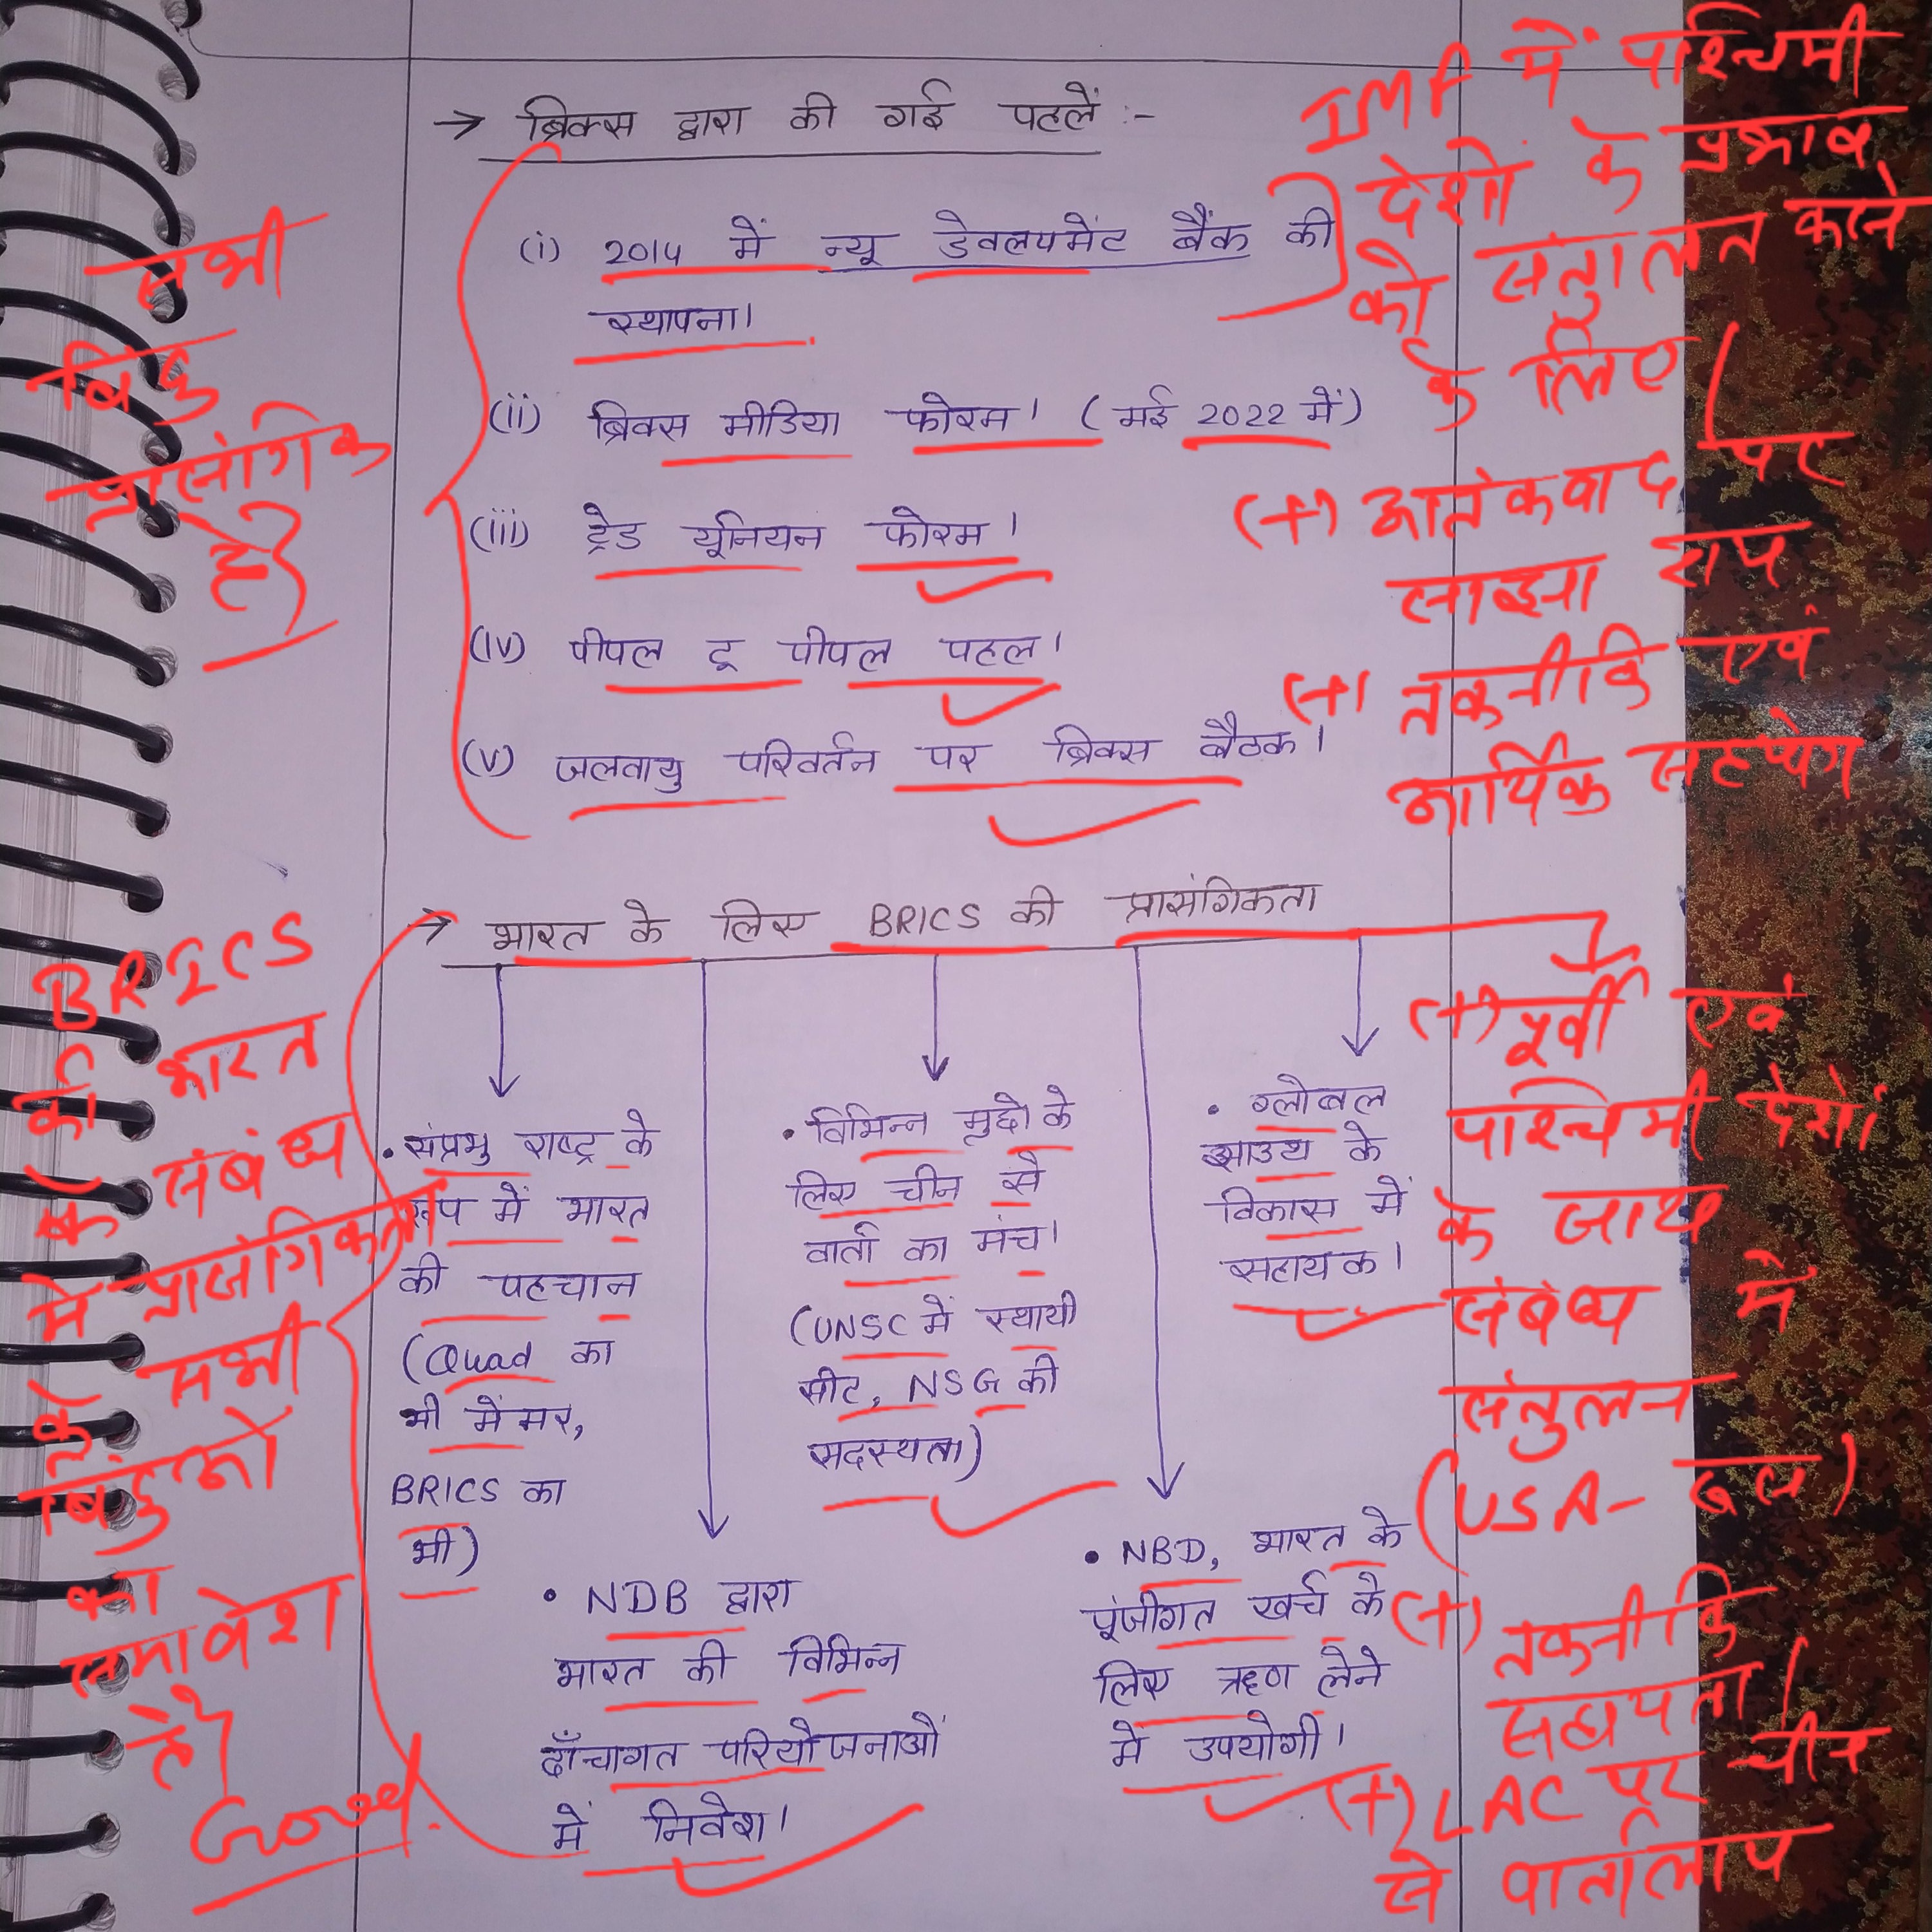 → ब्रिक्स द्वारा की गई पहलें :-
(i) 2014 में न्यू डेवलपमेंट बैंक की
स्थापना।
(ii) ब्रिक्स मीडिया फोरम। (मई 2022 में)
(iii) ट्रेड यूनियन फोरम।
(iv) पीपल टू पीपल पहल।
(v) जलवायु परिवर्तन पर ब्रिक्स बैठक।
सभी
बिंदु
प्रासंगिक
है।
IMF में पश्चिमी
देशों के प्रभाव
को संतुलन करने
के लिए।
(+) आतंकवाद पर
साझा राय
(+) तकनीकि एवं
आर्थिक सहयोग
→ भारत के लिए BRICS की प्रासंगिकता
• संप्रभु राष्ट्र के
रूप में भारत
की पहचान
(Quad का
भी मेंमर,
BRICS का
भी)
• NDB द्वारा
भारत की विभिन्न
ढाँचागत परियोजनाओं
में निवेश।
• विभिन्न मुद्दो के
लिए चीन से
वार्ता का मंच।
(UNSC में स्थायी
सीट, NSG की
सदस्यता)
• NBD, भारत के
पूंजीगत खर्च के
लिए ऋण लेने
में उपयोगी।
• ग्लोबल
साउथ के
विकास में
सहायक।
BRICS
की भारत
के संबंध
में प्रासंगिकता
के सभी
बिंदुओं
का
समावेश
है।
Good.
(+) पूर्वी एवं
पश्चिमी देशों
के साथ
संबंध में
संतुलन
(USA- रूस)
(+) तकनीकि
सहायता।
(+) LAC पर चीन
से वार्तालाप